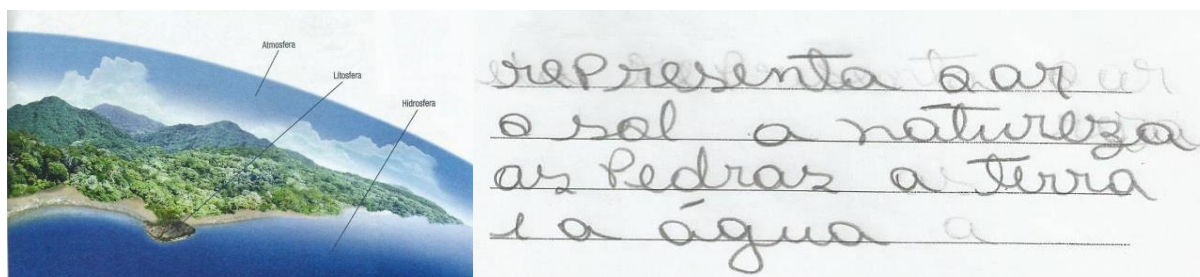 Atmosfera
Litosfera
Hidrosfera
representa o ar
o sol a natureza
as Pedras a terra
e a água a